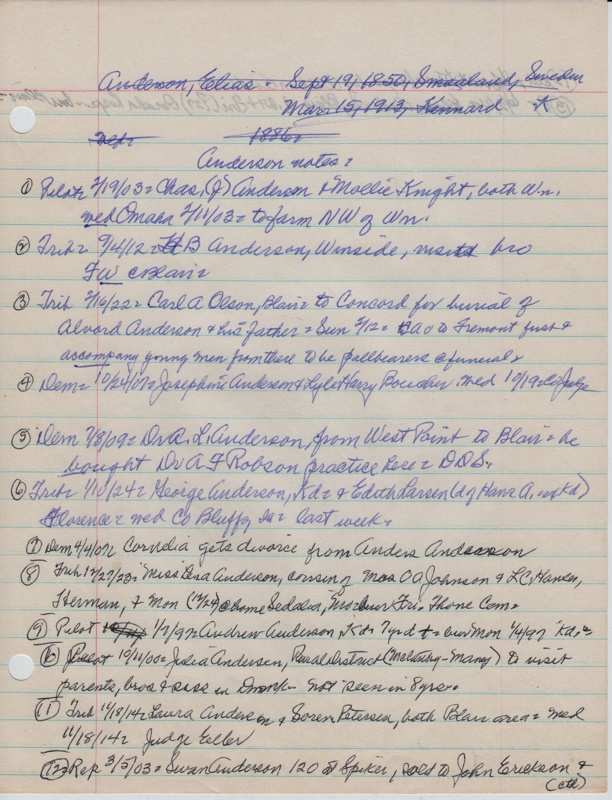 Anderson, Elias - Sept 19, 1850, Smaaland, Sweden
Mar. 15, 1913, Kennard
1886=
Anderson notes:
① Pilot= 2/19/03= Chas. (J) Anderson & Mollie Knight, both Wn.
wed Omaha 2/11/03= to farm NW of Wn.
② Trib= 9/4/12= B Anderson, Winside, visited bro
FW @ Blair=
③ Trib 2/16/22= Carl A Olson, Blair= to Concord for burial of
Alvord Anderson & his father= Sun 2/12= to Fremont first &
accompany young men from there to be pallbearers @ funeral.
④ Dem= 10/24/07= Josephine Anderson & Lyle Harry Boucher wed 10/19= Co Judge
⑤ Dem 7/8/09= Dr A. L. Anderson, from West Point to Blair= he
bought Dr A F Robson practice here= DDS.
⑥ Trib= 1/10/24= George Anderson, Kd= & Edith Larsen (d of Hans A. of Kd)
Florence= wed Co Bluffs Ia= last week.
⑦ Dem 4/4/07= Cornelia gets divorce from Anders Anderson
⑧ Trib 12/27/23= Miss Anderson, cousin of Mrs OA Johnson & LC Hansen,
Herman, + Mon (12/24) @ home Sedalia, Mo= bur Fri. Thone Cem=
⑨ Pilot 1/7/97= Andrew Anderson, Kd= 7yrd += bur Mon 1/4/97 Kd.=
⑩ Pilot 10/11/00= Julia Andersen, Rural District to visit
parents, bros & sis in Dnmrk= not seen in 8 yrs.
⑪ Trib 11/18/14= Laura Andersen & Soren Petersen, both Blair area= wed
11/18/14= Judge Eller
⑫ Rep 3/5/03= Swan Anderson 120 @ Spiker, sold to John Erickson &
(ctd)